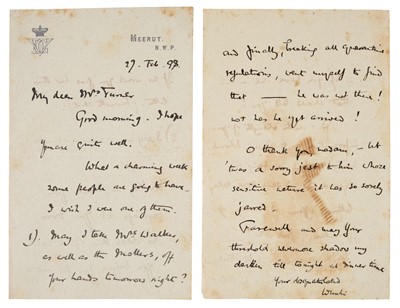 MEERUT.
N.W.P.
27. Feb 98.
My dear Mrs Turner
Good morning. I hope
you are quite well.
What a charming week
some people are going to have.
I wish I were one of them.
1). May I take Mrs Walker,
as well as the Mothers, off
your hands tomorrow night?
and finally, breaking all Quarantine
regulations, went myself to find
that —— he was not there!
nor has he yet arrived!
O thank you madam, – but
'twas a sorry jest to him whose
sensitive nature it has so sorely
jarred.
Farewell and may your
threshold nevermore shadow my
till tonight at dinner time
Your